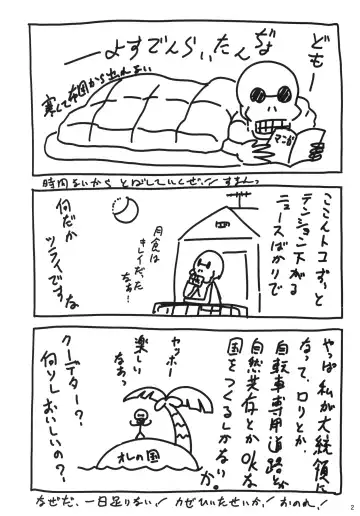 どもー
ぢょ
んたいらんでずよー
寒くて布団から出れない
マンガ
時間ないから とばしていくぜ!! すまんっ
ここんトコずっと
テンション下がる
ニュースばかりで
月食は
キレイだった
なあ!
何だか
ツライですな
やっぱ私が大統領に
なって、ロリとか、
自転車専用道路とか
自然共存とかOKな
国をつくるしかないか。
ヤッホー
楽しい
なあっ
オレの国
クーデター?
何ソレおいしいの?
なぜだ、一日足りない! カゼひいたせいか! おのれ!
2